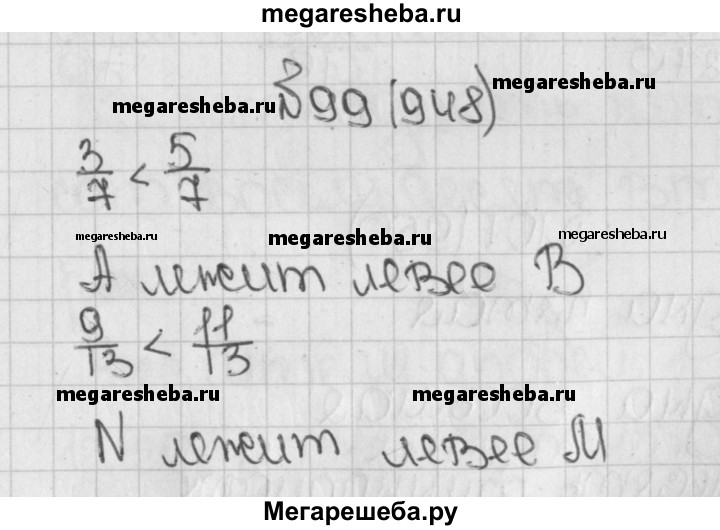 megaresheba.ru
№99 (948)
megaresheba.ru megaresheba.ru
3/7 < 5/7
megaresheba.ru megaresheba.ru megaresheba.ru
A лежит левее B
9/13 < 11/13
megaresheba.ru megaresheba.ru
N лежит левее M
Мегарешеба.ру